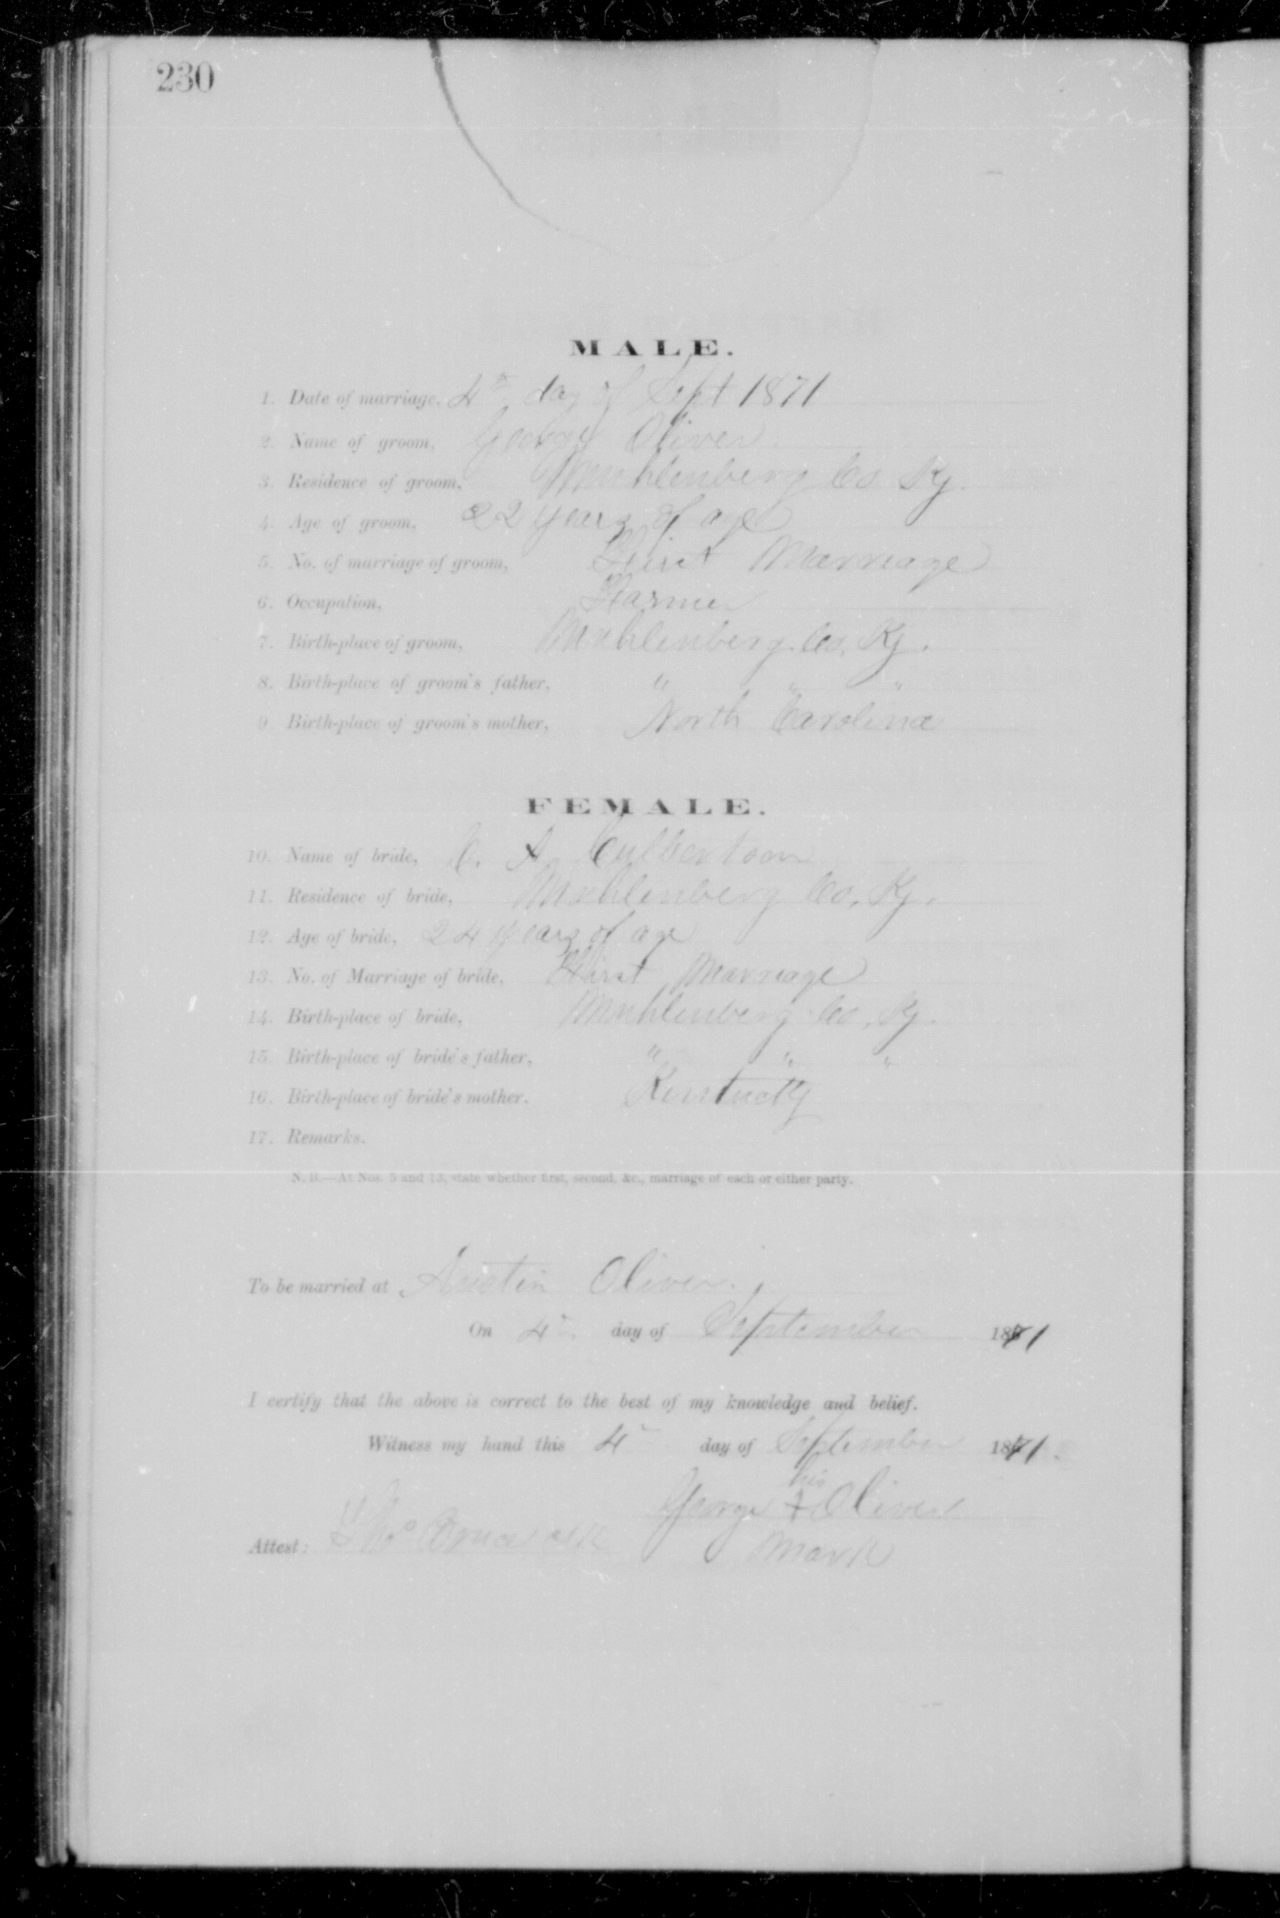 230
MALE.
1. Date of marriage, 4th day of Sept 1871
2. Name of groom, George Oliver
3. Residence of groom, Muhlenberg Co Ky.
4. Age of groom, 22 years of age
5. No. of marriage of groom, First Marriage
6. Occupation, Farmer
7. Birth-place of groom, Muhlenberg Co, Ky.
8. Birth-place of groom's father, " " "
9. Birth-place of groom's mother, North Carolina
FEMALE.
10. Name of bride, C. A. Culbertson
11. Residence of bride, Muhlenberg Co, Ky.
12. Age of bride, 24 years of age
13. No. of Marriage of bride, First Marriage
14. Birth-place of bride, Muhlenberg Co, Ky.
15. Birth-place of bride's father, " " "
16. Birth-place of bride's mother. Kentucky
17. Remarks.
N. B.—At Nos. 5 and 13, state whether first, second, &c., marriage of each or either party.
To be married at Austin Oliver.
On 4th day of September 1871
I certify that the above is correct to the best of my knowledge and belief.
Witness my hand this 4th day of September 1871.
his
George + Oliver
Attest: mark